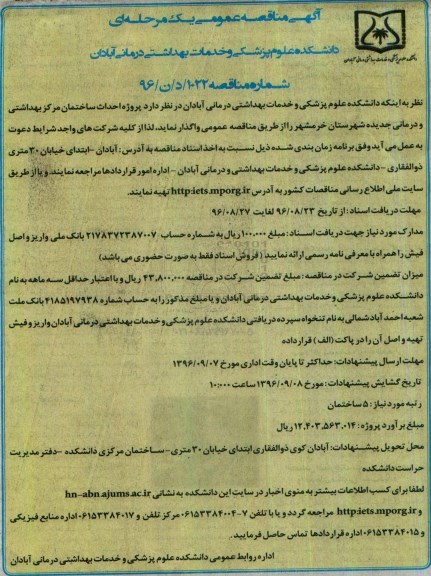 آگهی مناقصه عمومی یک مرحله ای
دانشکده علوم پزشکی و خدمات بهداشتی درمانی آبادان
شماره مناقصه ۱۰۲۲/د/ن/۹۶
نظر به اینکه دانشکده علوم پزشکی و خدمات بهداشتی درمانی آبادان در نظر دارد پروژه احداث ساختمان مرکز بهداشتی
و درمانی جدیده شهرستان خرمشهر را از طریق مناقصه عمومی واگذار نماید، لذا از کلیه شرکت های واجد شرایط دعوت
به عمل می آید وفق برنامه زمان بندی شده ذیل نسبت به اخذ اسناد مناقصه به آدرس: آبادان -ابتدای خیابان ۳۰ متری
ذوالفقاری -دانشکده علوم پزشکی و خدمات بهداشتی و درمانی آبادان - اداره امور قراردادها مراجعه نمایند. و یا از طریق
سایت ملی اطلاع رسانی مناقصات کشور به آدرس http:iets.mporg.ir تهیه نمایند.
مهلت دریافت اسناد: از تاریخ ۹۶/۰۸/۲۳ لغایت ۹۶/۰۸/۲۷
مدارک مورد نیاز جهت دریافت اسناد: مبلغ ۱۰۰,۰۰۰ ریال به شماره حساب ۲۱۷۸۳۷۲۳۸۷۰۰۷ بانک ملی واریز و اصل
فیش را همراه با معرفی نامه رسمی ارائه نمایید (فروش اسناد فقط به صورت حضوری می باشد)
میزان تضمین شرکت در مناقصه: مبلغ تضمین شرکت در مناقصه ۴۳,۸۰۰,۰۰۰ ریال و با اعتبار حداقل سه ماهه به نام
دانشکده علوم پزشکی و خدمات بهداشتی درمانی آبادان و یا مبلغ مذکور را به حساب شماره ۴۱۸۵۱۹۷۹۳۸ بانک ملت
شعبه احمد آباد شمالی به نام تنخواه سپرده دریافتی دانشکده علوم پزشکی و خدمات بهداشتی درمانی آبادان واریز و فیش
تهیه و اصل آن را در پاکت (الف) قرار داده
مهلت ارسال پیشنهادات: حداکثر تا پایان وقت اداری مورخ ۱۳۹۶/۰۹/۰۷
تاریخ گشایش پیشنهادات: مورخ ۱۳۹۶/۰۹/۰۸ ساعت ۱۰:۰۰
رتبه مورد نیاز: ۵ ساختمان
مبلغ برآورد پروژه: ۱۲,۴۰۳,۵۶۳,۰۱۴ ریال
محل تحویل پیشنهادات: آبادان کوی ذوالفقاری ابتدای خیابان ۳۰ متری- ساختمان مرکزی دانشکده -دفتر مدیریت
حراست دانشکده
لطفا برای کسب اطلاعات بیشتر به منوی اخبار در سایت این دانشکده به نشانی hn-abn.ajums.ac.ir
و http:iets.mporg.ir مراجعه گردد و یا با تلفن ۷-۰۶۱۵۳۳۸۴۰۰۴ مرکز تلفن و ۰۶۱۵۳۳۸۴۰۱۷ اداره منابع فیزیکی
و ۰۶۱۵۳۳۸۴۰۱۵ اداره قراردادها تماس حاصل فرمایید.
اداره روابط عمومی دانشکده علوم پزشکی و خدمات بهداشتی درمانی آبادان